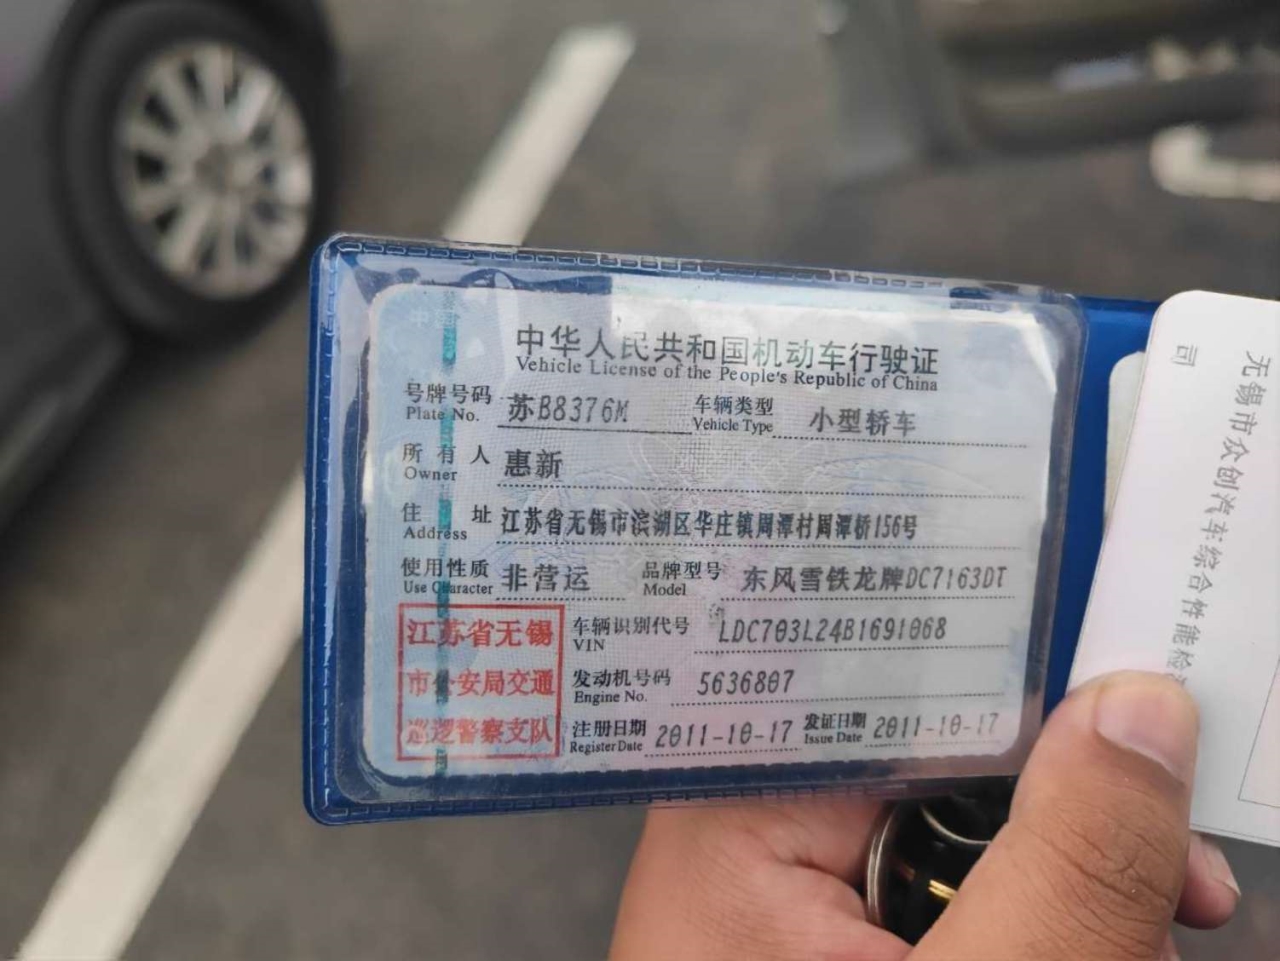 中华人民共和国机动车行驶证
Vehicle License of the People's Republic of China
号牌号码 苏B8376M 车辆类型 小型轿车
Plate No. Vehicle Type
所有人 惠新
Owner
住址 江苏省无锡市滨湖区华庄镇周潭村周潭桥156号
Address
使用性质 非营运 品牌型号 东风雪铁龙牌DC7163DT
Use Character Model
江苏省无锡
市公安局交通
巡逻警察支队
车辆识别代号 LDC703L24B1691068
VIN
发动机号码 5636807
Engine No.
注册日期 2011-10-17 发证日期 2011-10-17
Register Date Issue Date
无锡市众创汽车综合性能检
司